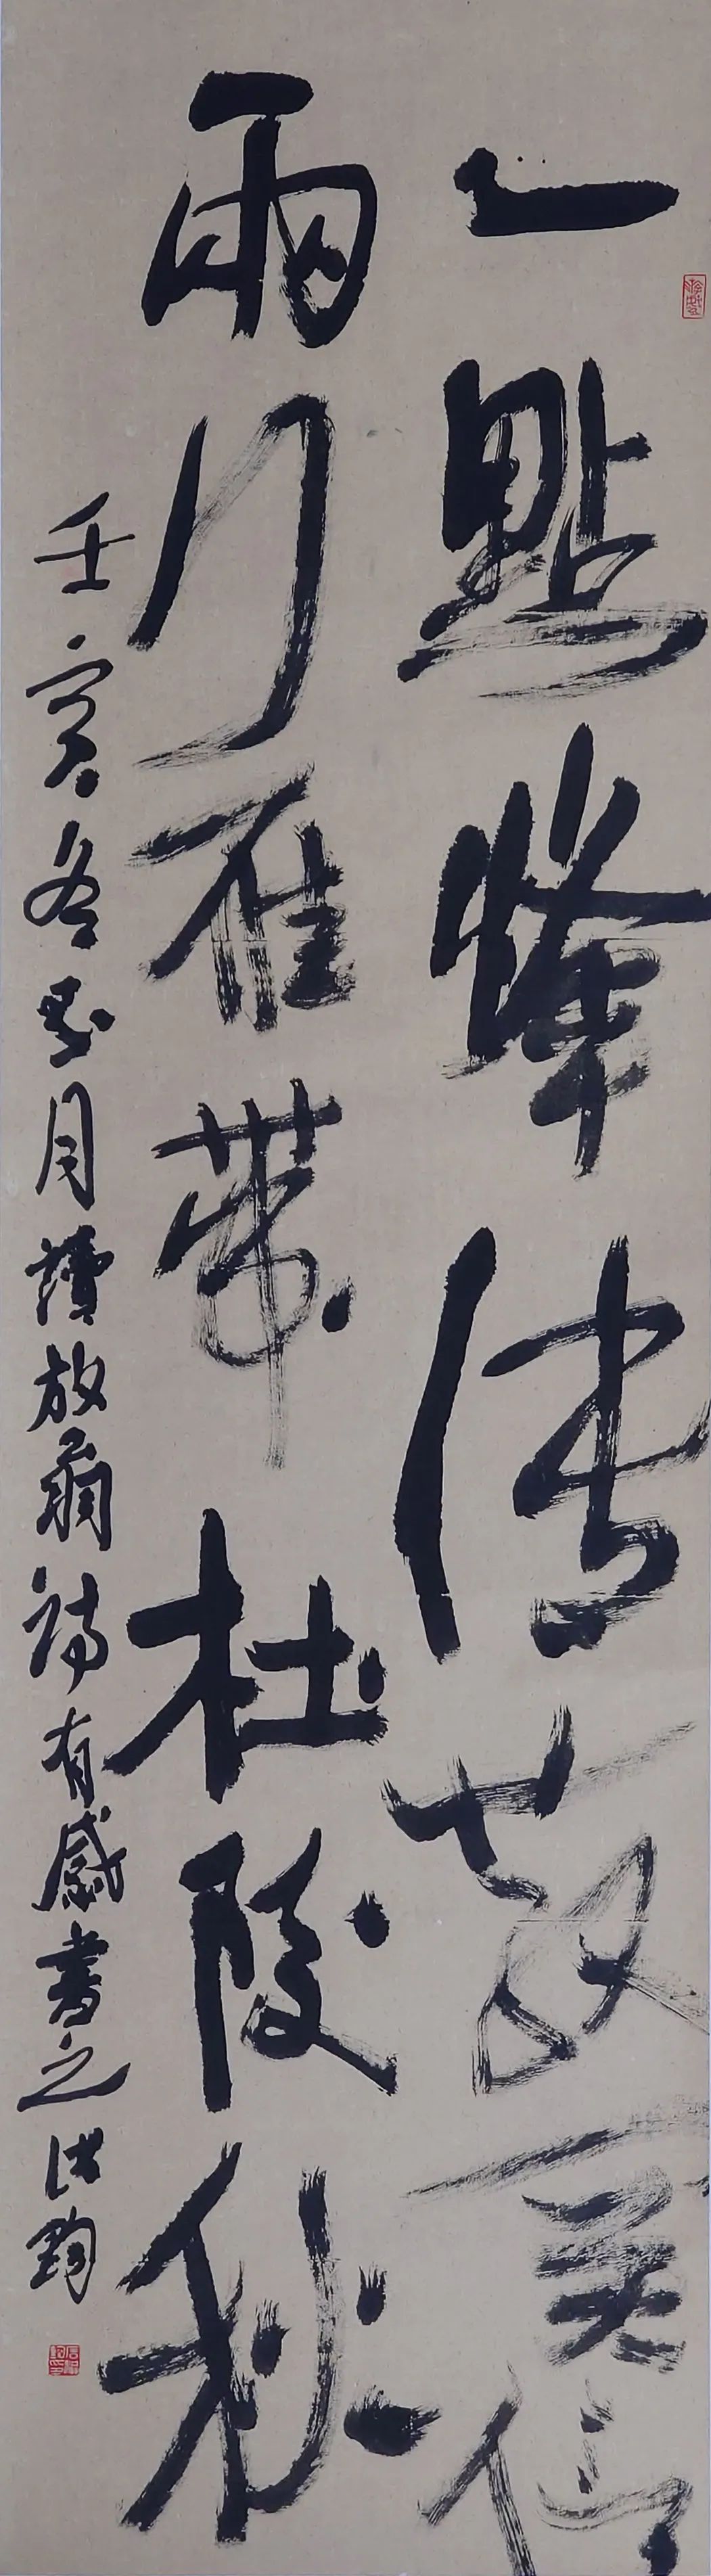 一點烽傳散關信
兩行雁帶杜陵秋
壬寅冬月讀放翁詩有感書之